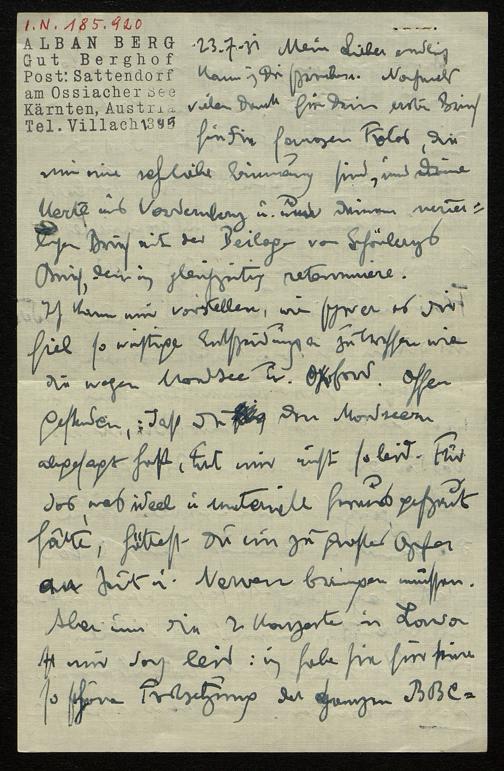 I.N. 185.920
ALBAN BERG
Gut Berghof
Post: Sattendorf
am Ossiacher See
Kärnten, Austria
Tel. Villach 1395
23.7.31 Mein Lieber endlich
kann ich Dir schreiben. Nochmals
vielen Dank für Dein ersten Brief
für die famosen Fotos, die
mir eine so liebe Erinnerung sind, und Deine
Karte aus Vordernberg u. Deinem
Brief mit der Beilage von Schönbergs
Brief, den ich gleichzeitig retourniere.
Ich kann mir vorstellen, wie schwer es Dir
fiel so wichtige Entscheidungen zu treffen wie
die wegen Mondsee u. Oxford. Offen
gestanden: Daß Du den Mondseern
abgesagt hast, tut mir nicht so leid. Für
das, was ideell u. materiell herausgeschaut
hätte, hättest Du ein zu großes Opfer
an Zeit u. Nerven bringen müssen.
Aber um die 2 Konzerte in London
ist mir doch leid: ich habe sie für eine
so schöne Fortsetzung der ganzen BBC=